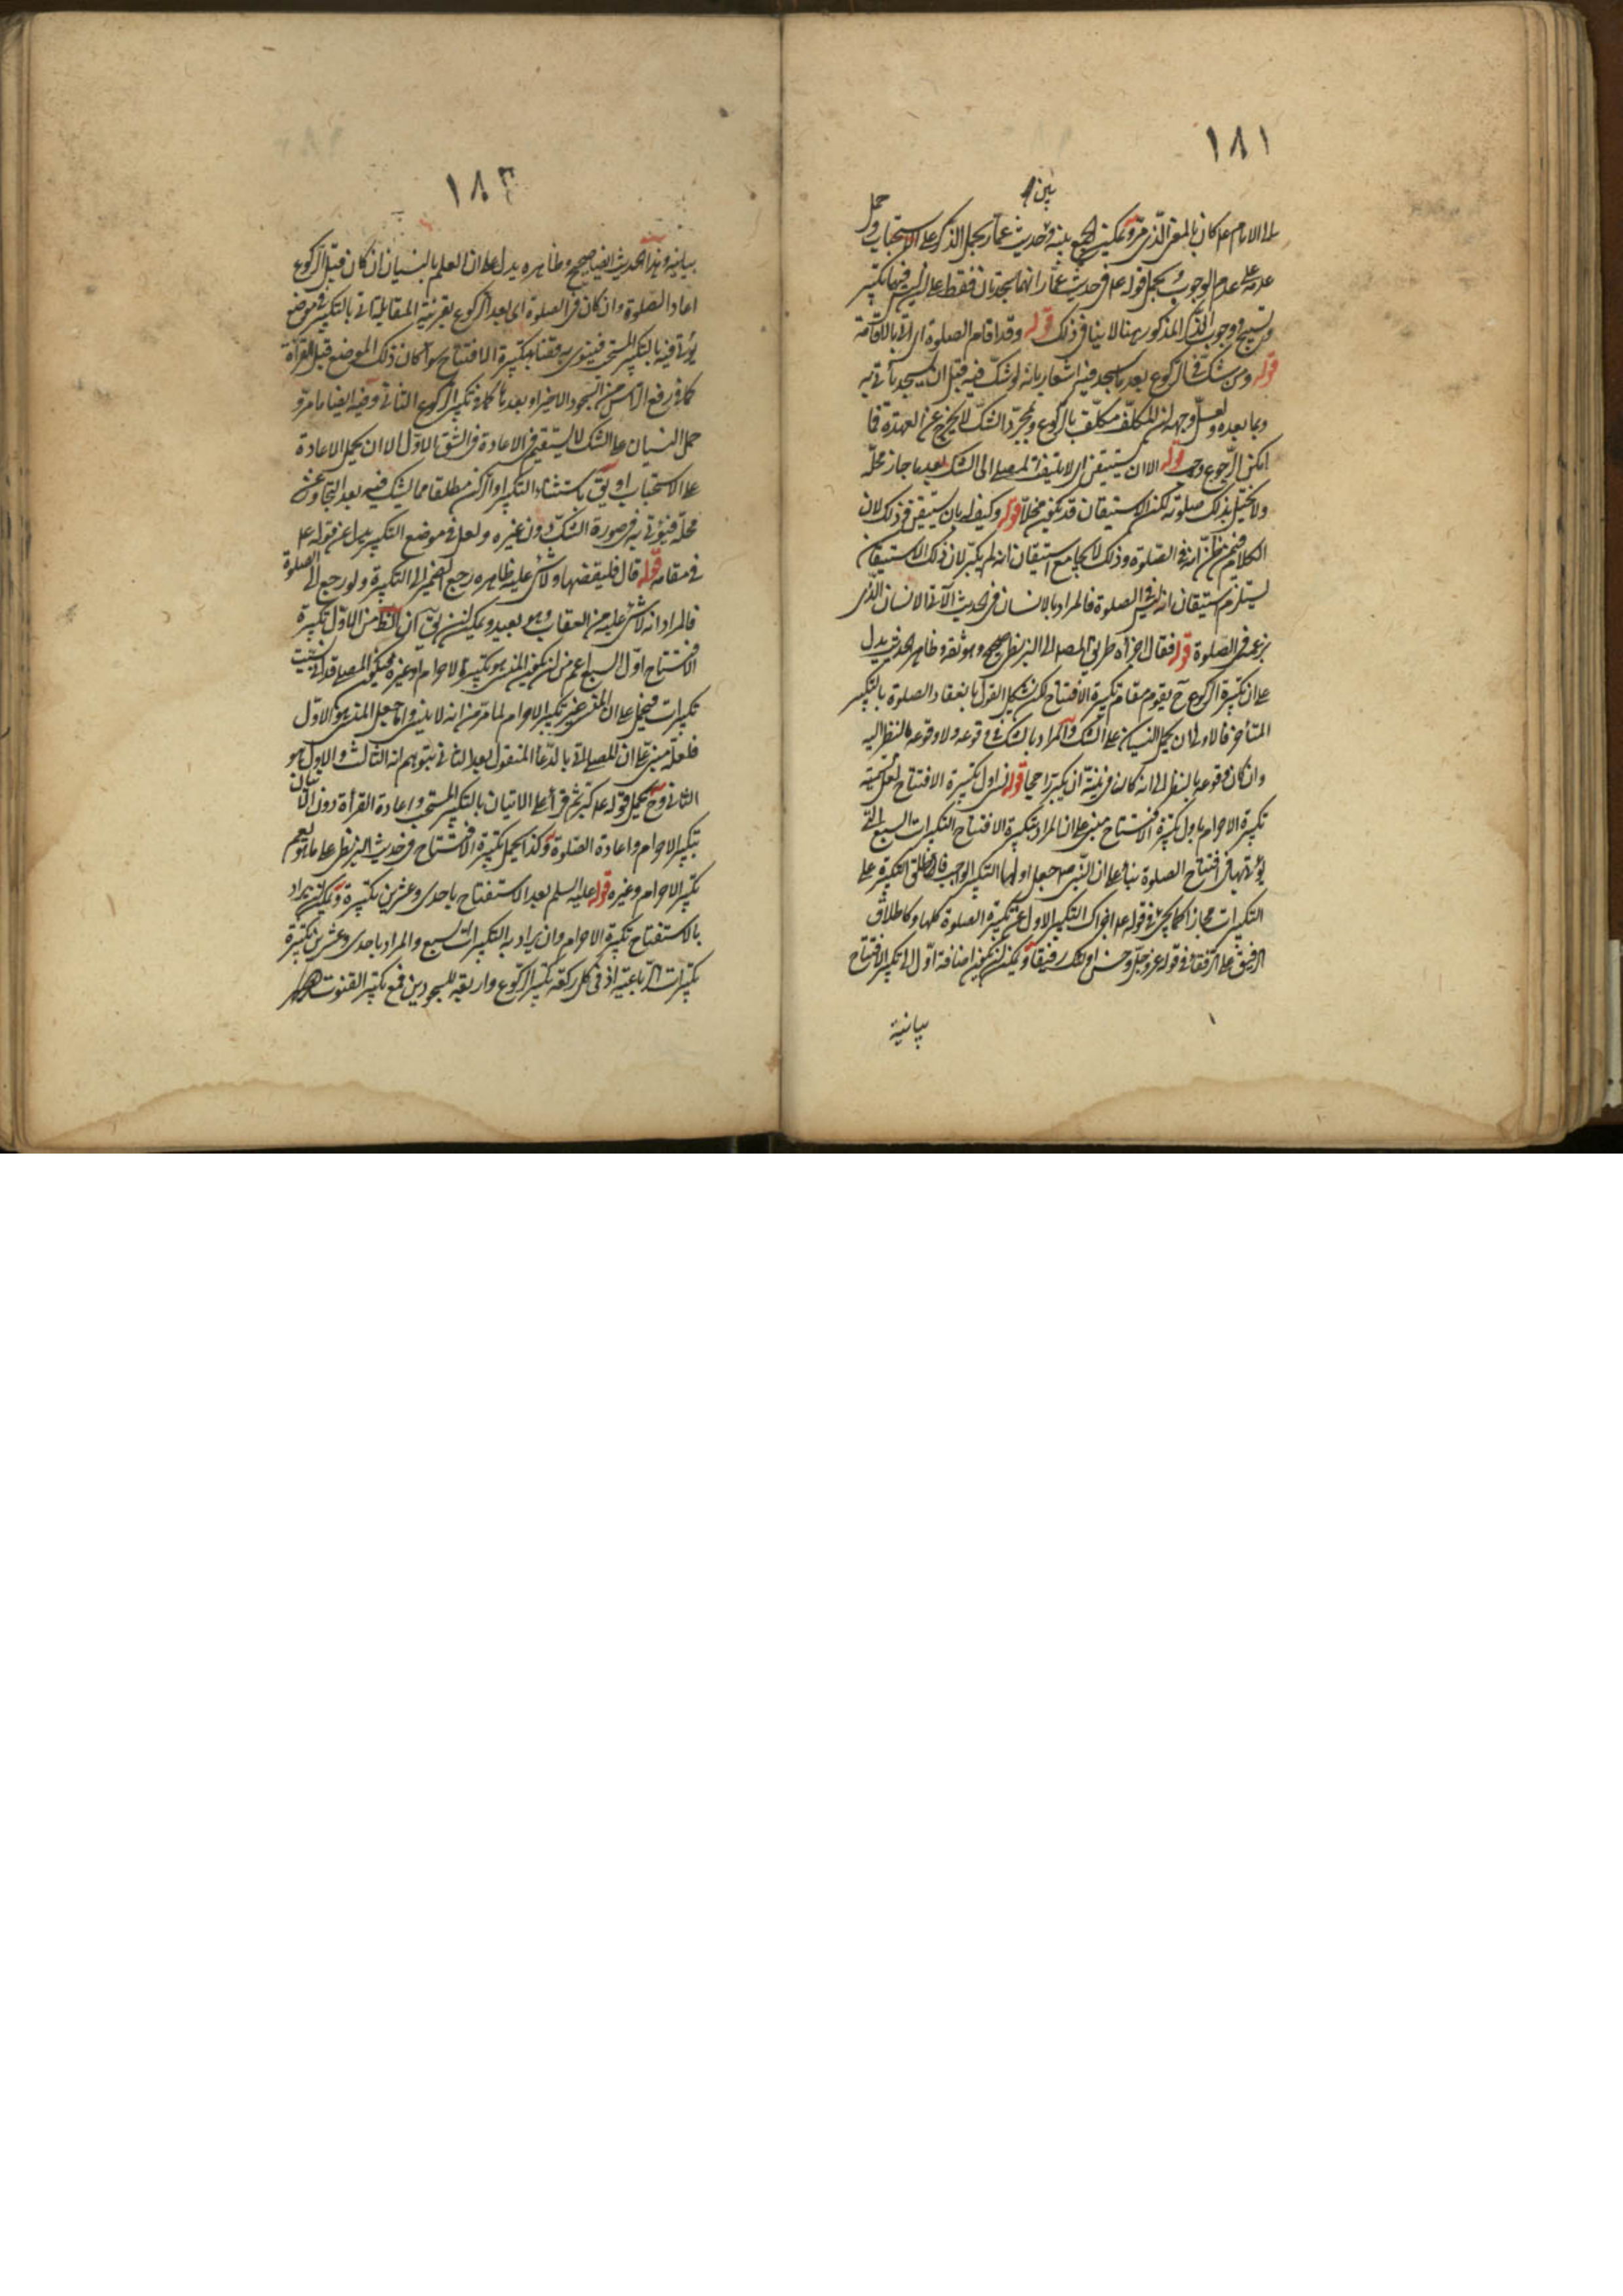 ١٨١
بين
الامام عم كان بالمعنى الذي مر ويمكن الجمع بينه وحديث عمار بحمل الذكر على الاستحباب وحمل
عدمه على عدم الوجوب ويحمل قوله عم في حديث عمار انهما سجدتان فقط على ان ليس فيهما تكبير
وتسبيح ووجوب الذكر المذكور ههنا لا ينافي ذلك قوله وقد اقام الصلوة اي اتى بالاقامة
قوله ومن شك في الركوع بعد ما سجد فيه اشعار بانه لو شك فيه قبل ان يسجد يأتي به
وبما بعده ولعل وجهه ان المكلف مكلف بالركوع وبمجرد الشك لا يخرج عن العهدة فما
امكن الرجوع وجب قوله الا ان يستيقن اي لا يلتفت المصلي الى الشك بعد ما جاز محله
ولا يختل بذلك صلوته لكن الاستيقان قد يكون مخلا قوله وكيف له بان يستيقن وذلك لان
الكلام فيمن ظن انه في الصلوة وذلك لا يجامع استيقان انه لم يكبر لان ذلك الاستيقان
يستلزم استيقان انه ليس في الصلوة فالمراد بالانسان في الحديث الآتي الانسان الذي
يزعم في الصلوة قوله فقال اجزأه طريق المصـ الى البزنطي صحيح وهو ثقة وظاهر الحديث يدل
على ان تكبيرة الركوع ح يقوم مقام تكبيرة الافتتاح لكن يشكل القول بانعقاد الصلوة بالتكبير
المتأخر فالاولى ان يحمل النسيان على الشك والمراد بالشك في وقوعه ولا وقوعه بالنظر اليه
وان كان وقوعه بالنظر الى انه كان في نيته ان يكبر راجحا قوله نسي اول تكبيرة الافتتاح لعل تسمية
تكبيرة الاحرام باول تكبيرة الافتتاح مبني على ان المراد بتكبيرة الافتتاح التكبيرات السبع التي
يؤتى بها في افتتاح الصلوة بناء على ان النبي ص جعل اولها التكبير الواجب فاطلق التكبيرة على
التكبيرات مجازا كما يجئ في قوله عم اجزاك التكبير الاول عن تكبيرة الصلوة كلها وكاطلاق
الرفيق على الرفقاء في قوله عز وجل وحسن اولئك رفيقا ويمكن ان يكون اضافة اول الى تكبير الافتتاح
بيانية
١٨٢
بيانية وهذا الحديث ايضا صحيح وظاهره يدل على ان العلم بالنسيان ان كان قبل الركوع
اعاد الصلوة وان كان في الصلوة اي بعد الركوع بقرينة المقابلة اتى بالتكبير في موضع
يؤتى فيه بالتكبير المستحب فينوي به قضاء تكبيرة الافتتاح سواء كان ذلك الموضع قبل القرأة
كما في رفع الراس من السجود الاخير او بعدها كما في تكبير الركوع الثاني وفيه ايضا ما مر و
حمل النسيان على الشك لا يستقيم في الاعادة في الشق الاول الا ان يحمل الاعادة
على الاستحباب او يق باستثناء التكبير او الركن مطلقا مما يشك فيه بعد التجاوز عن
محله فيؤتى به في صورة الشك دون غيره ولعل في موضع التكبير بدل عن قوله عم
في مقامه قوله قال فليقضها ولا شئ عليه ظاهره رجع الضمير الى التكبيرة ولو رجع الى الصلوة
فالمراد انه لا شئ عليه من العقاب وهو بعيد ويمكن ان يق ان الظ من الاول تكبيرة
الافتتاح اول السبع اعم من ان يكون المنسي هو تكبيرة الاحرام او غيره فيكون المصلي قد اتى بست
تكبيرات فيحمل على ان المنسي غير تكبير الاحرام لما مر من انه لا ينسى وانما جعل المنسي هو الاول
فلعله مبني على ان المصلي اتى بالدعاء المنقول بعد الثاني بتوهم انه الثالث والاول هو
الثاني وح يحمل قوله عم كبر ثم قرأ على الاتيان بالتكبير المستحب واعادة القرأة دون الاتيان
بتكبير الاحرام واعادة الصلوة وكذا يحمل تكبيرة الافتتاح في حديث البزنطي على ما هو يعم
تكبير الاحرام وغيره قوله عليه السلم بعد الاستفتاح باحدى وعشرين تكبيرة ويمكن ان يراد
بالاستفتاح تكبيرة الاحرام وان يراد به التكبيرات السبع والمراد باحدى وعشرين تكبيرة
تكبيرات الرباعية اذ في كل ركعة تكبير الركوع واربعة للسجودين فمع تكبير القنوت